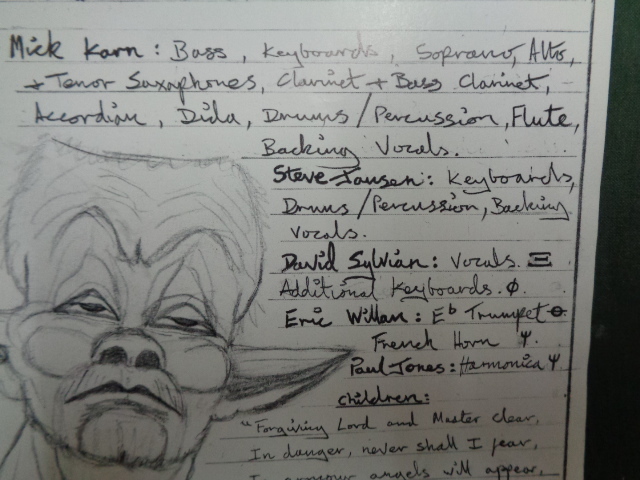 Mick Karn: Bass, Keyboards, Soprano, Alto,
+ Tenor Saxophones, Clarinet + Bass Clarinet,
Accordian, Dida, Drums/Percussion, Flute,
Backing Vocals.
Steve Jansen: Keyboards,
Drums/Percussion, Backing
Vocals.
David Sylvian: Vocals. Ξ
Additional Keyboards. Φ
Eric Willan: Eb Trumpet Θ
French Horn Ψ.
Paul Jones: Harmonica Ψ
Children:
"Forgiving Lord and Master clear,
In danger, never shall I fear,
angels will appear,